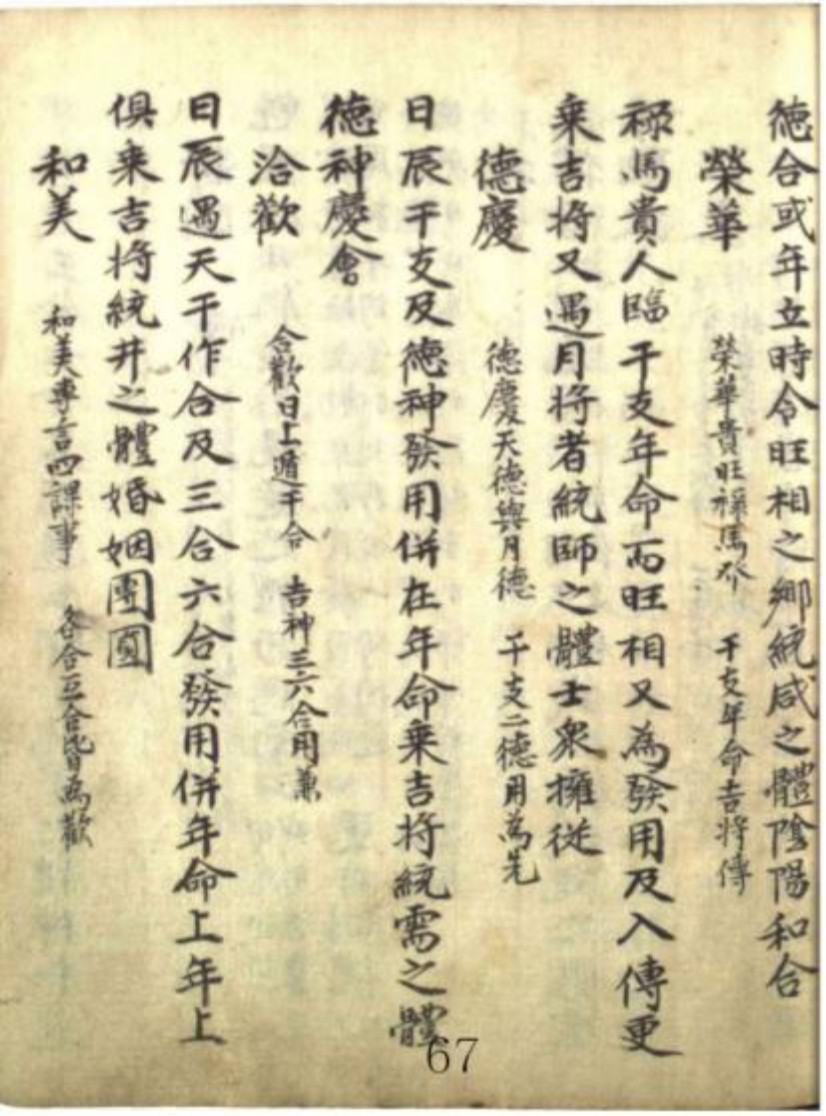 德合或年立時令旺相之鄉統咸之體陰陽和合
榮華 榮華貴旺祿馬發 干支年命吉將傳
祿馬貴人臨干支年命而旺相又為發用及入傳更
乘吉將又遇月將者統師之體士衆擁從
德慶 德慶天德與月德 干支二德用為先
日辰干支及德神發用併在年命乘吉將統需之體
德神慶會
洽歡 合歡日上遁干合 吉神三六合用兼
日辰遇天干作合及三合六合發用併年命上年上
俱乘吉將統井之體婚姻團圓
和美 和美專言四課事 各合互合皆為歡
67